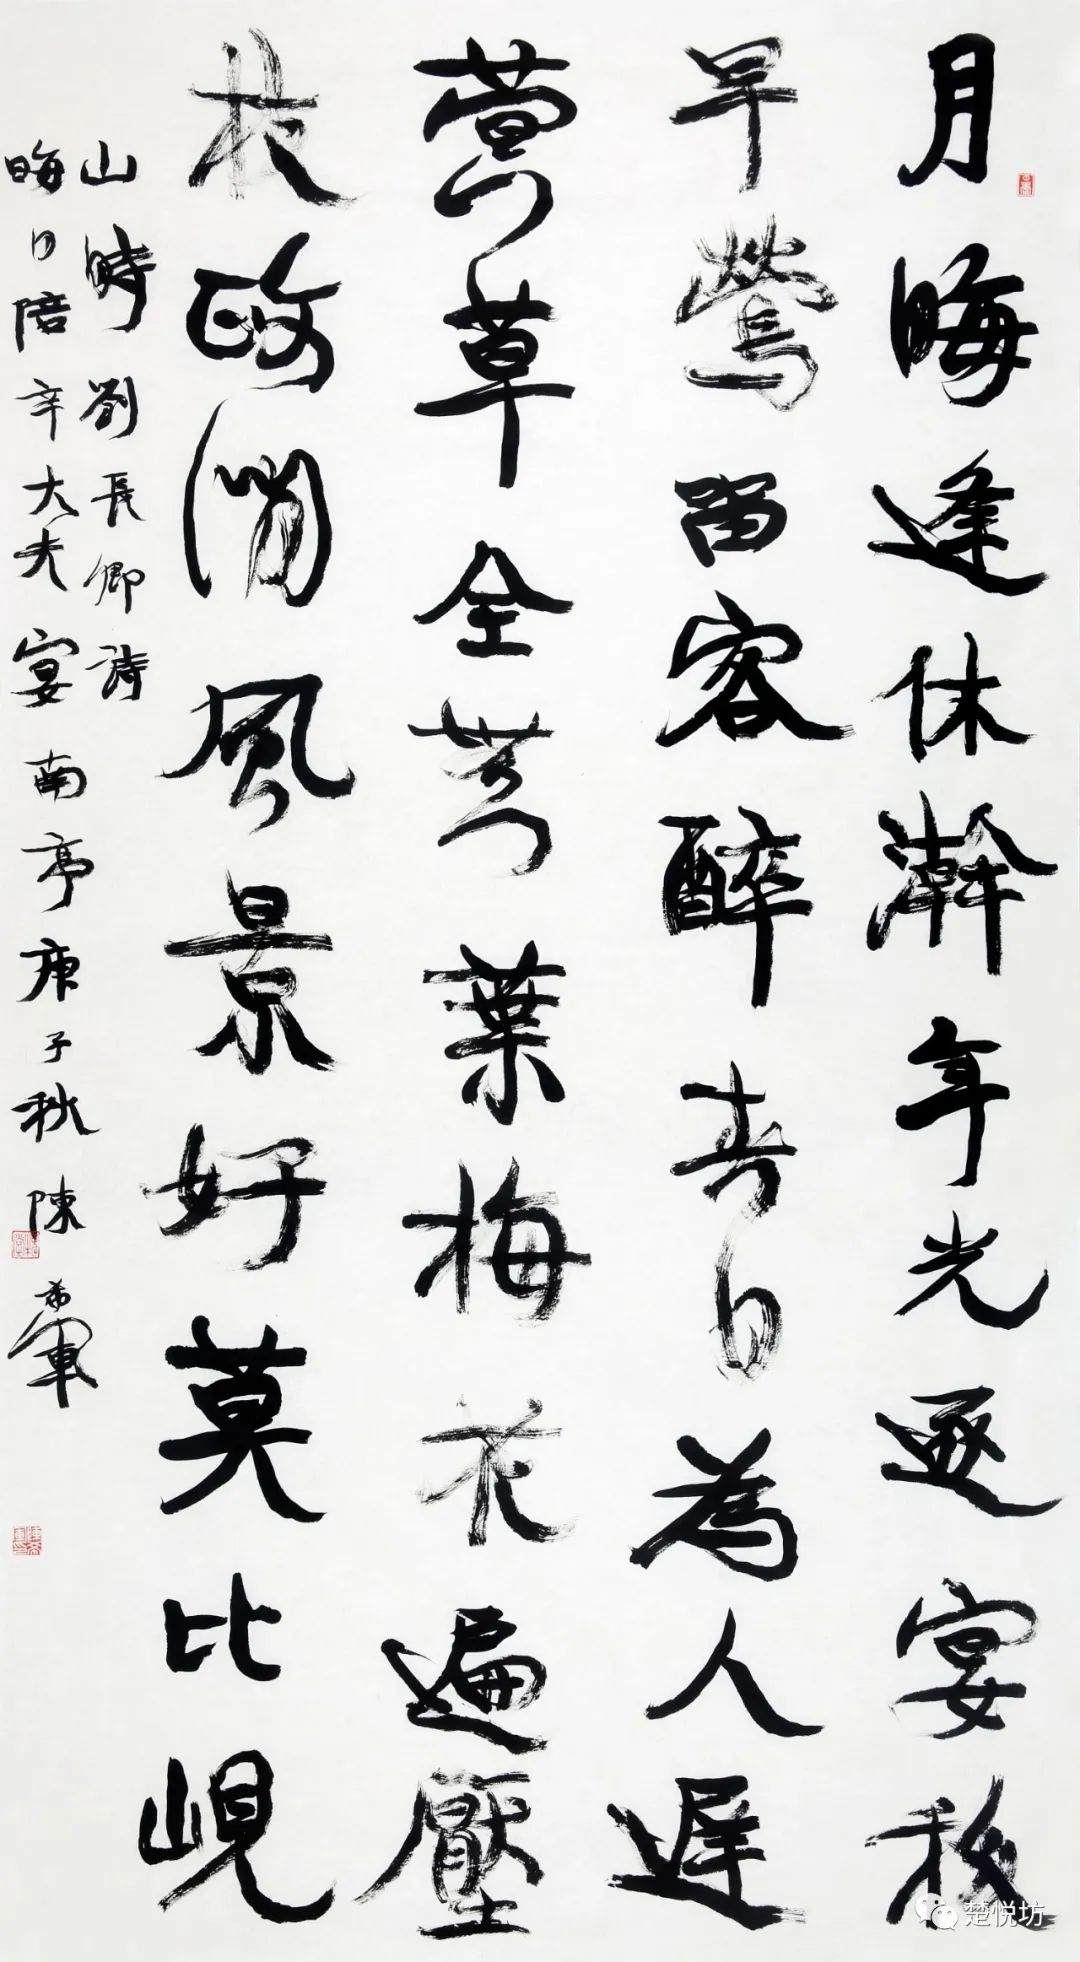 月晦逢休澣年光逐宴移
早鶯留客醉春日為人遲
蓂草全無葉梅花遍壓
枝政閒風景好莫比峴
山時劉長卿詩
晦日陪辛大夫宴南亭庚子秋陳希軍
楚悦坊